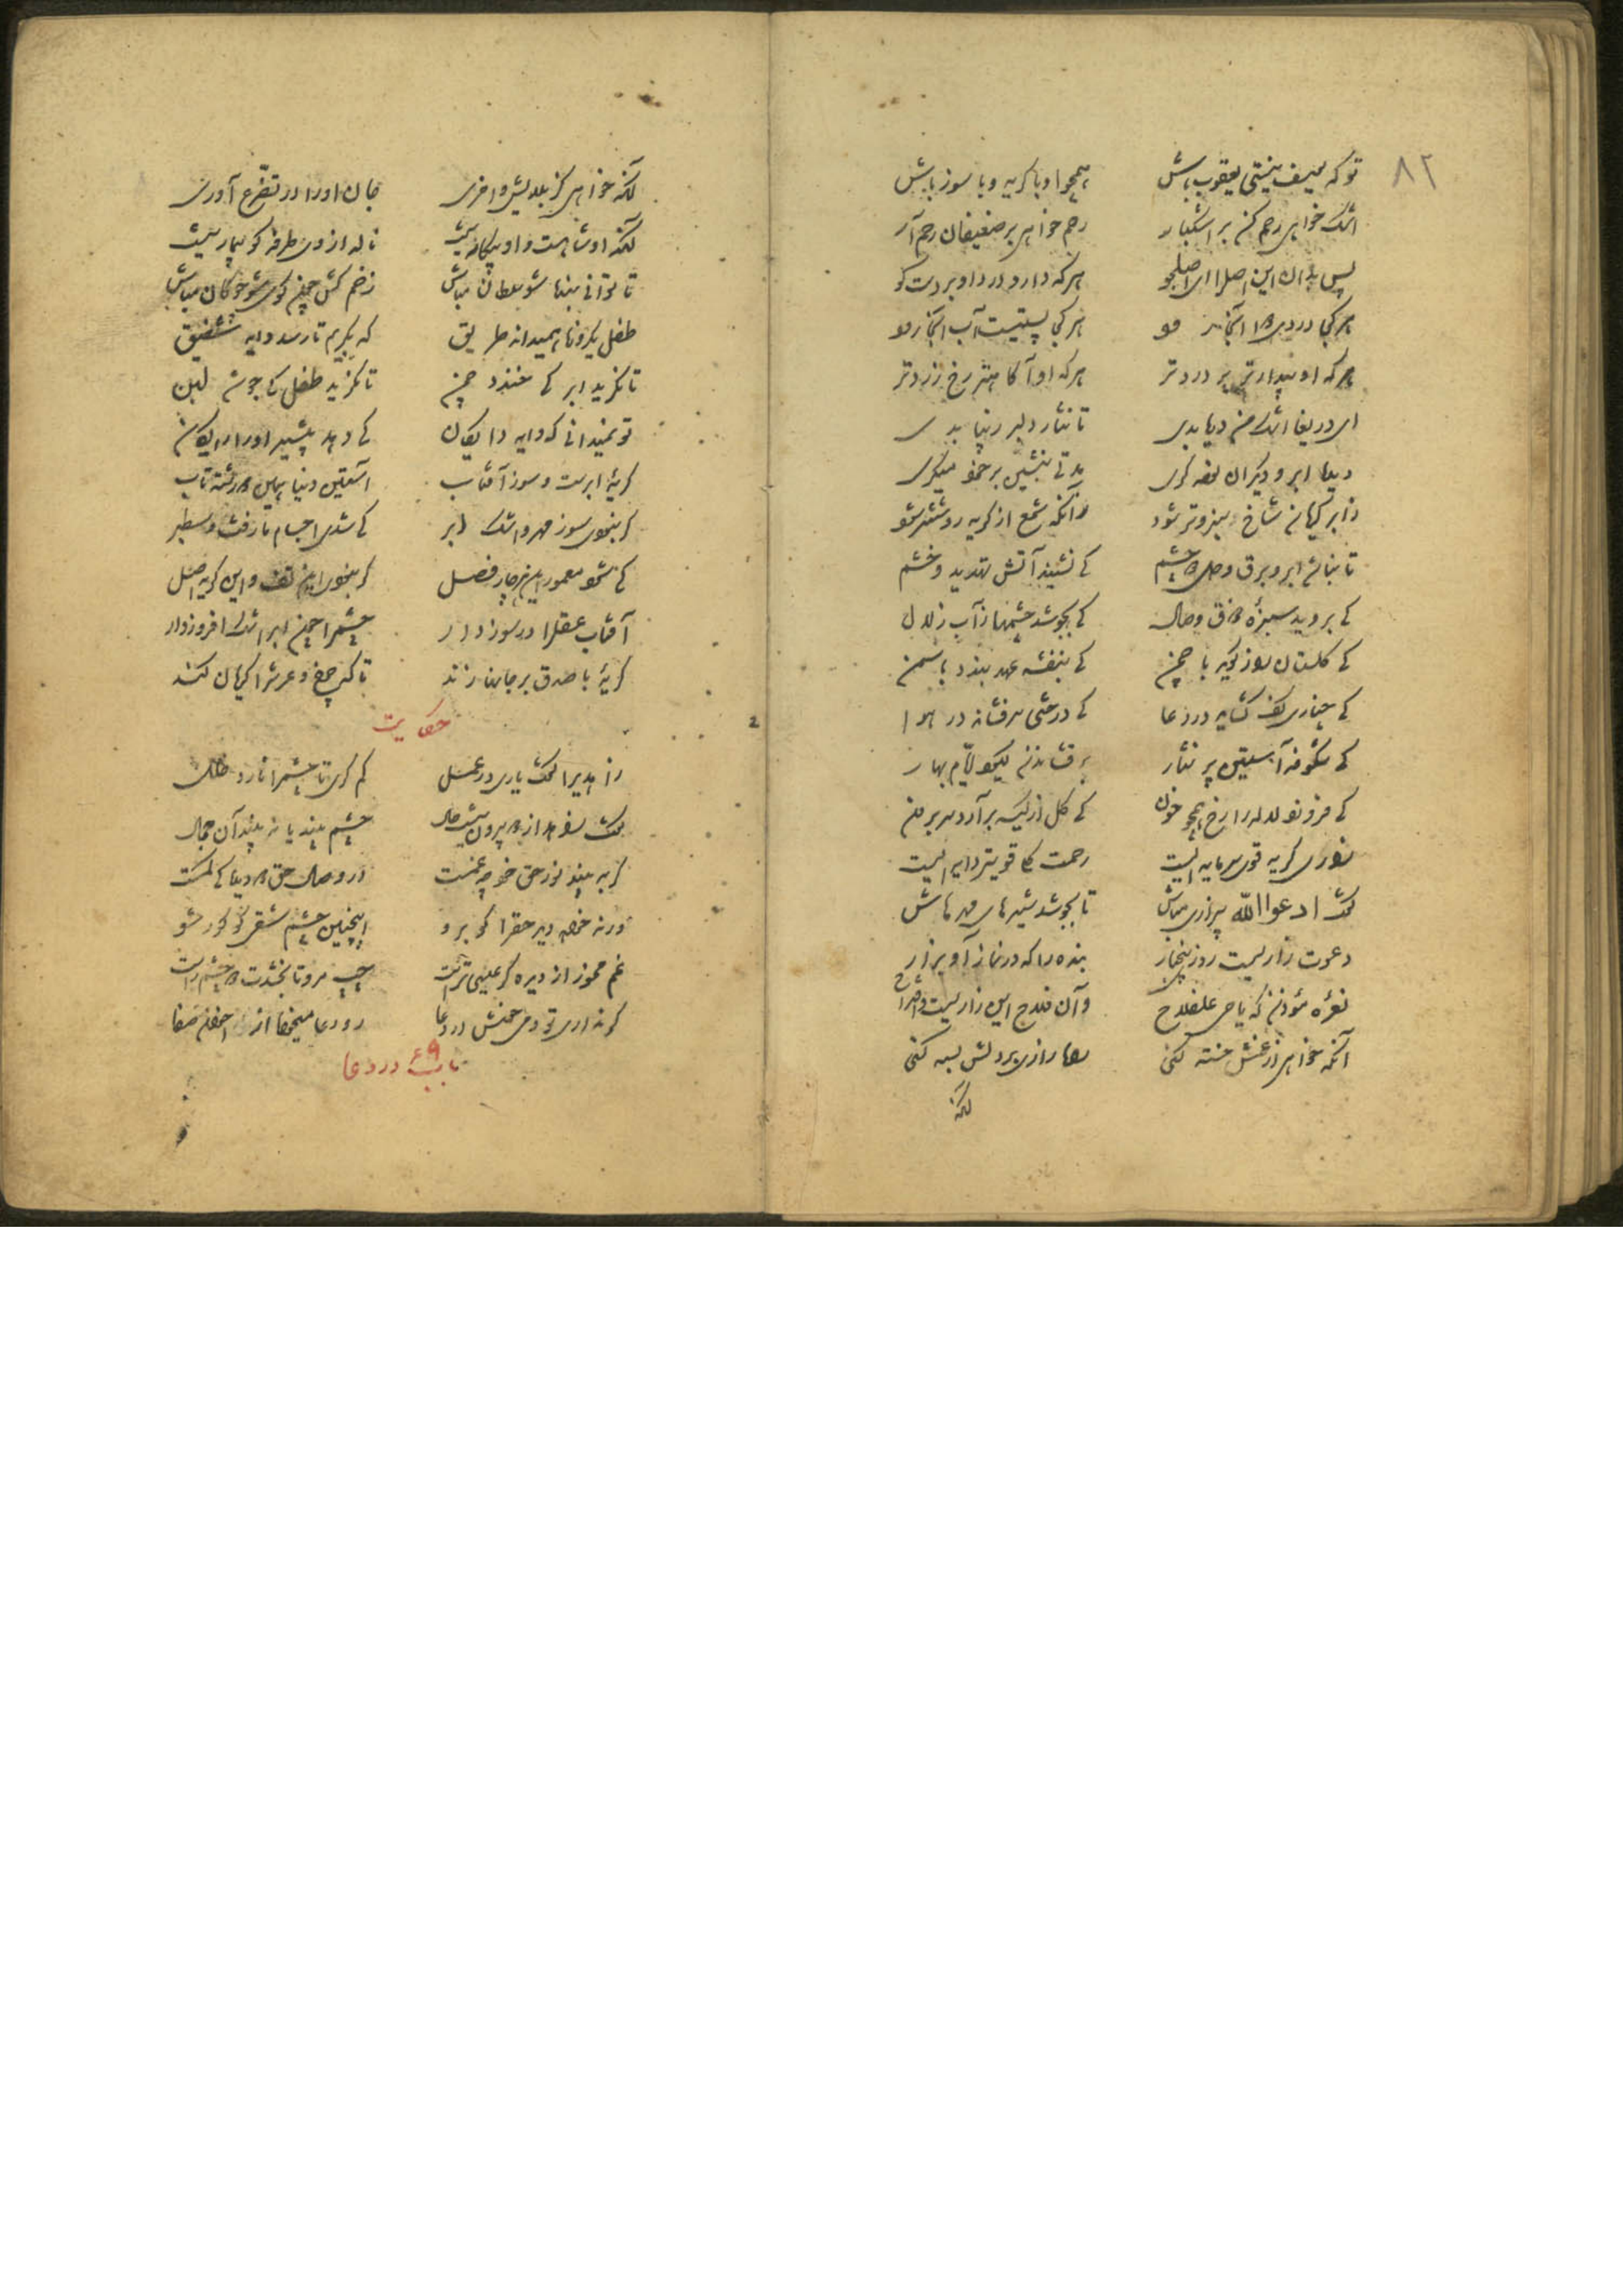 ۸۲
تو که یوسف نیستی یعقوب باش همچو او با گریه و با سوز باش
اشک خواهی رحم کن بر اشکبار رحم خواهی بر ضعیفان رحم آر
پس بدان این اصل را ای اصلجو هر که دارد درد او بردست بو
هر کجا دردی دوا آنجا رود هر کجا پستیست آب آنجا رود
هر که او بیدارتر پر دردتر هر که او آگاهتر رخ زردتر
ای دریغا اشک من دریا بدی تا نثار دلبر زیبا بدی
دیده ابر دیگران نوحه گری مدتی بنشین بر خود میگری
ز ابر گریان شاخ سبز و تر شود زآنکه شمع از گریه روشنتر شود
تا نباشد ابر و برق و چشم کی نشیند آتش تهدید و خشم
کی بروید سبزه ذوق وصال کی بجوشد چشمها ز آب زلال
کی گلستان راز گوید با چمن کی بنفشه عهد بندد با سمن
کی چناری کف گشاید در دعا کی درختی سر فشاند در هوا
کی شکوفه آستین پر نثار بر فشاندن گیرد ایام بهار
کی فروزد لاله را رخ همچو خون کی گل از کیسه برآرد زر برون
زاری و گریه قوی سرمایه ایست رحمت کلی قویتر دایه ایست
گفت ادعوا الله بیزاری مباش تا بجوشد شیرهای مهرهاش
دعوت زاریست روزی پنج بار بنده را که در نماز آ و بزار
نعره مؤذن که یا حی علی فلاح وآن فلاح این زاریست و اقتراح
آنکه خواهی از غمش خسته کنی راه زاری بر دلش بسته کنی
لکنه
لکنه خواهی کز بلایش واخری جان او را در تضرع آوری
لکنه او شاهست و او بیگانه نیست ناله از وی طرفه کو بیمار نیست
تا توانی بنده شو سلطان مباش زخم کش چون گوی شو چوگان مباش
طفل یکروزه همیداند طریق که بگریم تا رسد دایه شفیق
تا نگرید ابر کی خندد چمن تا نگرید طفل کی جوشد لبن
تو نمیدانی که دایه دایگان کی دهد بیشیر او را رایگان
گریه ابرست و سوز آفتاب استن دنیا همین دو رشته تاب
گر نبودی سوز مهر و اشک ابر کی شدی اجسام ما زفت و سطبر
کی شدی معمور این هر چار فصل گر نبودی این تف و این گریه اصل
آفتاب عقل را در سوز دار چشم را چون ابر اشک افروز دار
گریه با صدق بر جانها زند تا که چرخ و عرش را گریان کند
حکایت
زاهدی را گفت یاری در عمل کم گری تا چشم را ناید خلل
گفت زاهد از دو بیرون نیست حال چشم بیند یا نه بیند آن جمال
گر به بیند نور حق خود چه غمست در وصال حق دو دیده کی کمست
ورنه خواهد دید حق را گو برو اینچنین چشم شقی گو کور شو
غم مخور از دیده گر عیسی تراست چپ مرو تا بخشدت دو چشم راست
گر نداری تو دم خوش در دعا رو دعا میخواه از اخوان صفا
باب ۶۹ در دعا